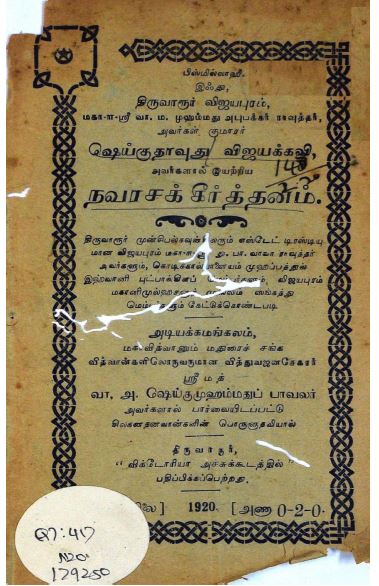 பிஸ்மில்லாஹி.
இஃது,
திருவாரூர் விஜயபுரம்,
மகா-ள-ஸ்ரீ வா. ம. முஹம்மது அபுபக்கர் ராவுத்தர்,
அவர்கள் குமாரர்
ஷெய்குதாவுது விஜயக்கவி,
அவர்களால் இயற்றிய
நவரசக் கீர்த்தனம்.
திருவாரூர் எஸ்டேட் டிரஸ்டியு
மான விஜயபுரம் பா. வாவா ராவுத்தர்
அவர்களும், கொடிக்கால் முஹப்பத்தில்
இஹ்வானி புட்பாக்கினப் விஜயபுரம்
சங்கத்து
கேட்டுக்கொண்டபடி
அடியக்கமங்கலம்,
மகாவித்வானும் மதுரைச் சங்க
வித்வான்களிலொருவருமான வித்துவஜனசேகரர்
ஸ்ரீமத்
வா, அ. ஷெய்குமுஹம்மதுப் பாவலர்
அவர்களால் பார்வையிடப்பட்டு
சிலகனதனவான்களின் பொருளுதவியால்
திருவாரூர்,
"விக்டோரியா அச்சுக்கூடத்தில்"
பதிப்பிக்கப்பெற்றது,
லை] 1920. [அணா 0-2-0.
N20
179250